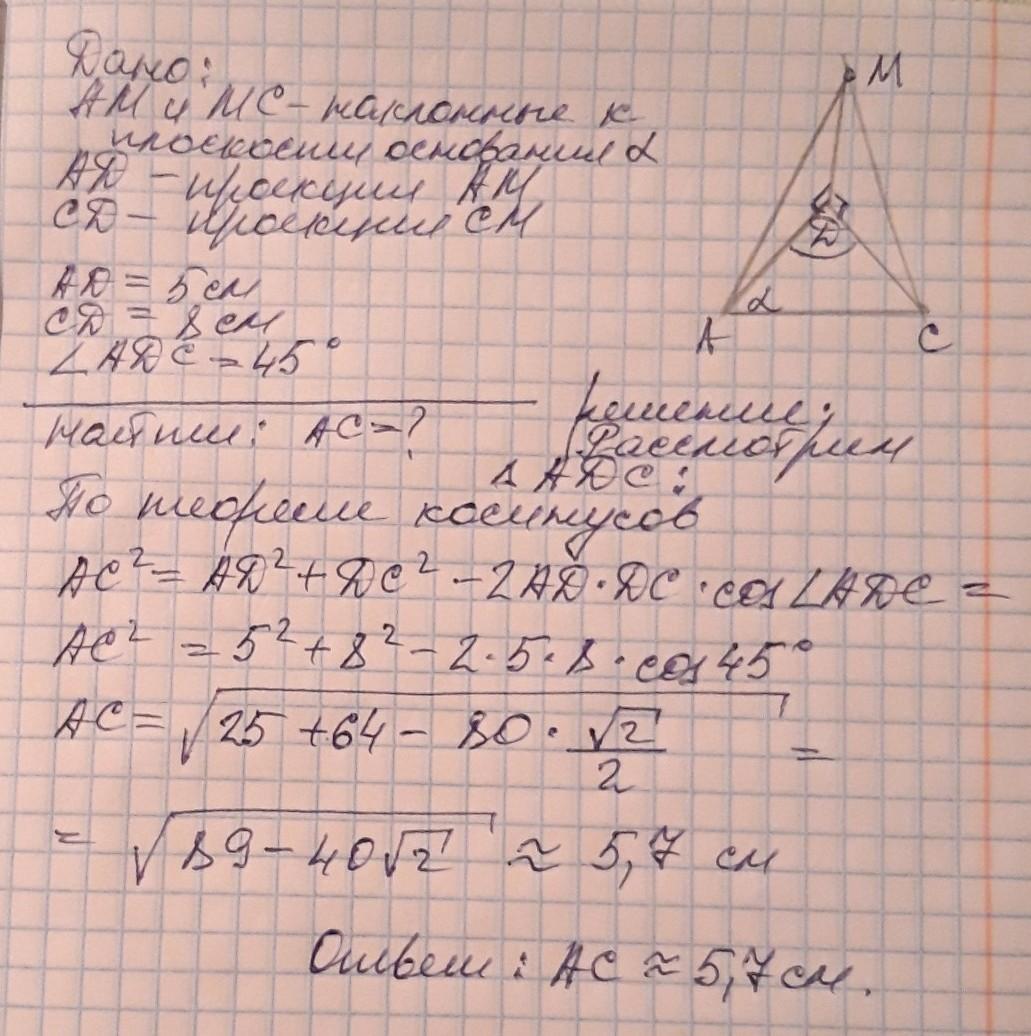 Дано:
АМ и МС - наклонные к
плоскости основания α
АD - проекция АМ
СD - проекция СМ
АD = 5 см
СD = 8 см
∠АDС = 45°
Найти: АС = ?
M
D
A
α
C
Решение:
Рассмотрим
△ АDС:
По теореме косинусов
АС² = АD² + DС² - 2АD · DС · cos∠АDС =
АС² = 5² + 8² - 2 · 5 · 8 · cos 45°
АС = √(25 + 64 - 80 · √2/2) =
= √(89 - 40√2) ≈ 5,7 см
Ответ: АС ≈ 5,7 см.